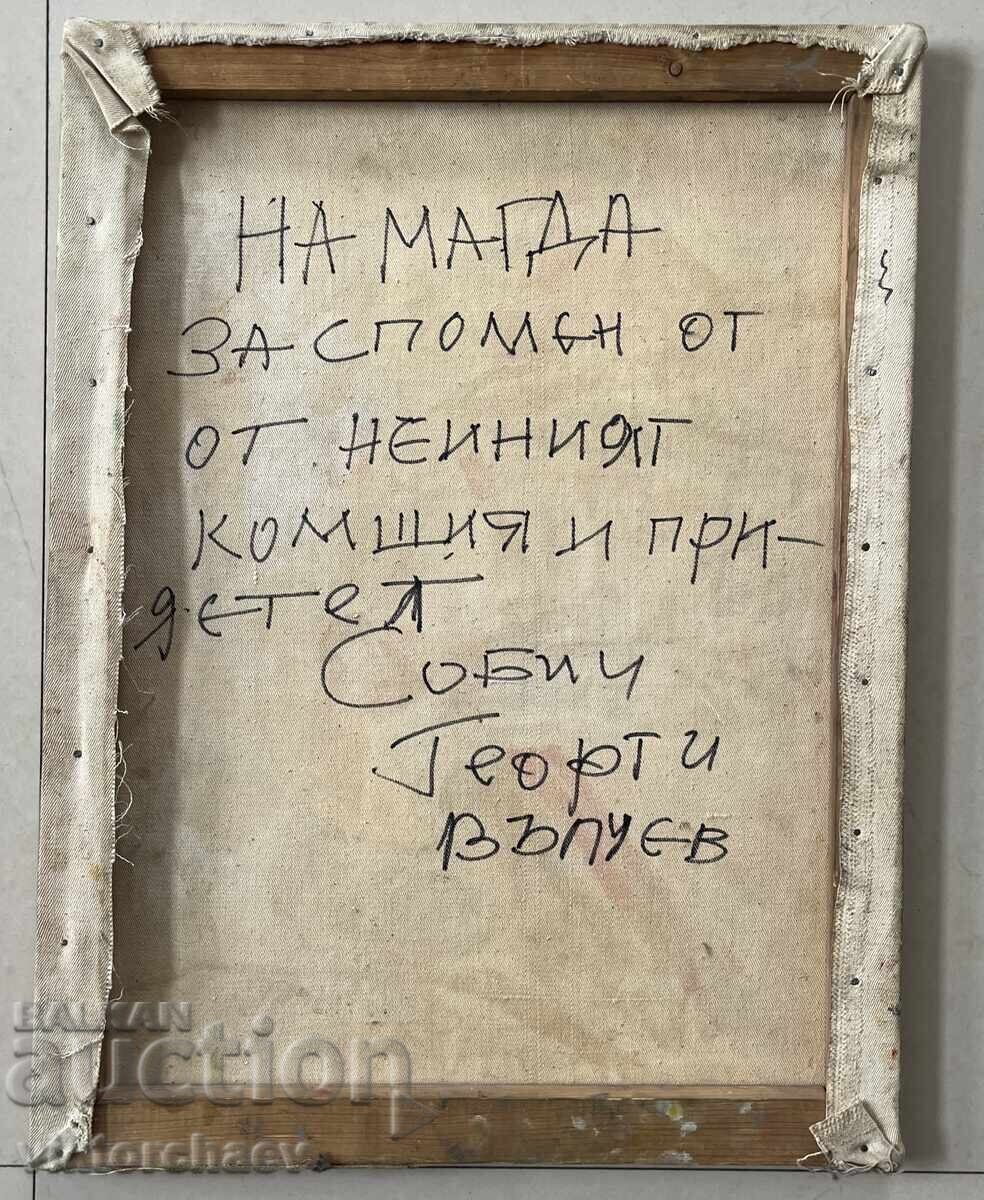 НА МАГДА
ЗА СПОМЕН ОТ
ОТ НЕИНИЯТ
КОМШИЯ И ПРИ-
ЯТЕЛ
СОБИЧ
ГЕОРГИ
BALKAN
auction
viktorchaev